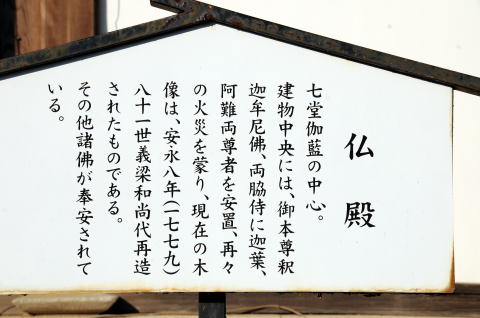 仏殿
七堂伽藍の中心。
建物中央には、御本尊釈
迦牟尼佛、両脇侍に迦葉、
阿難両尊者を安置、再々
の火災を蒙り、現在の木
像は、安永八年(一七七九)
八十一世義梁和尚代再造
されたものである。
その他諸佛が奉安されて
いる。